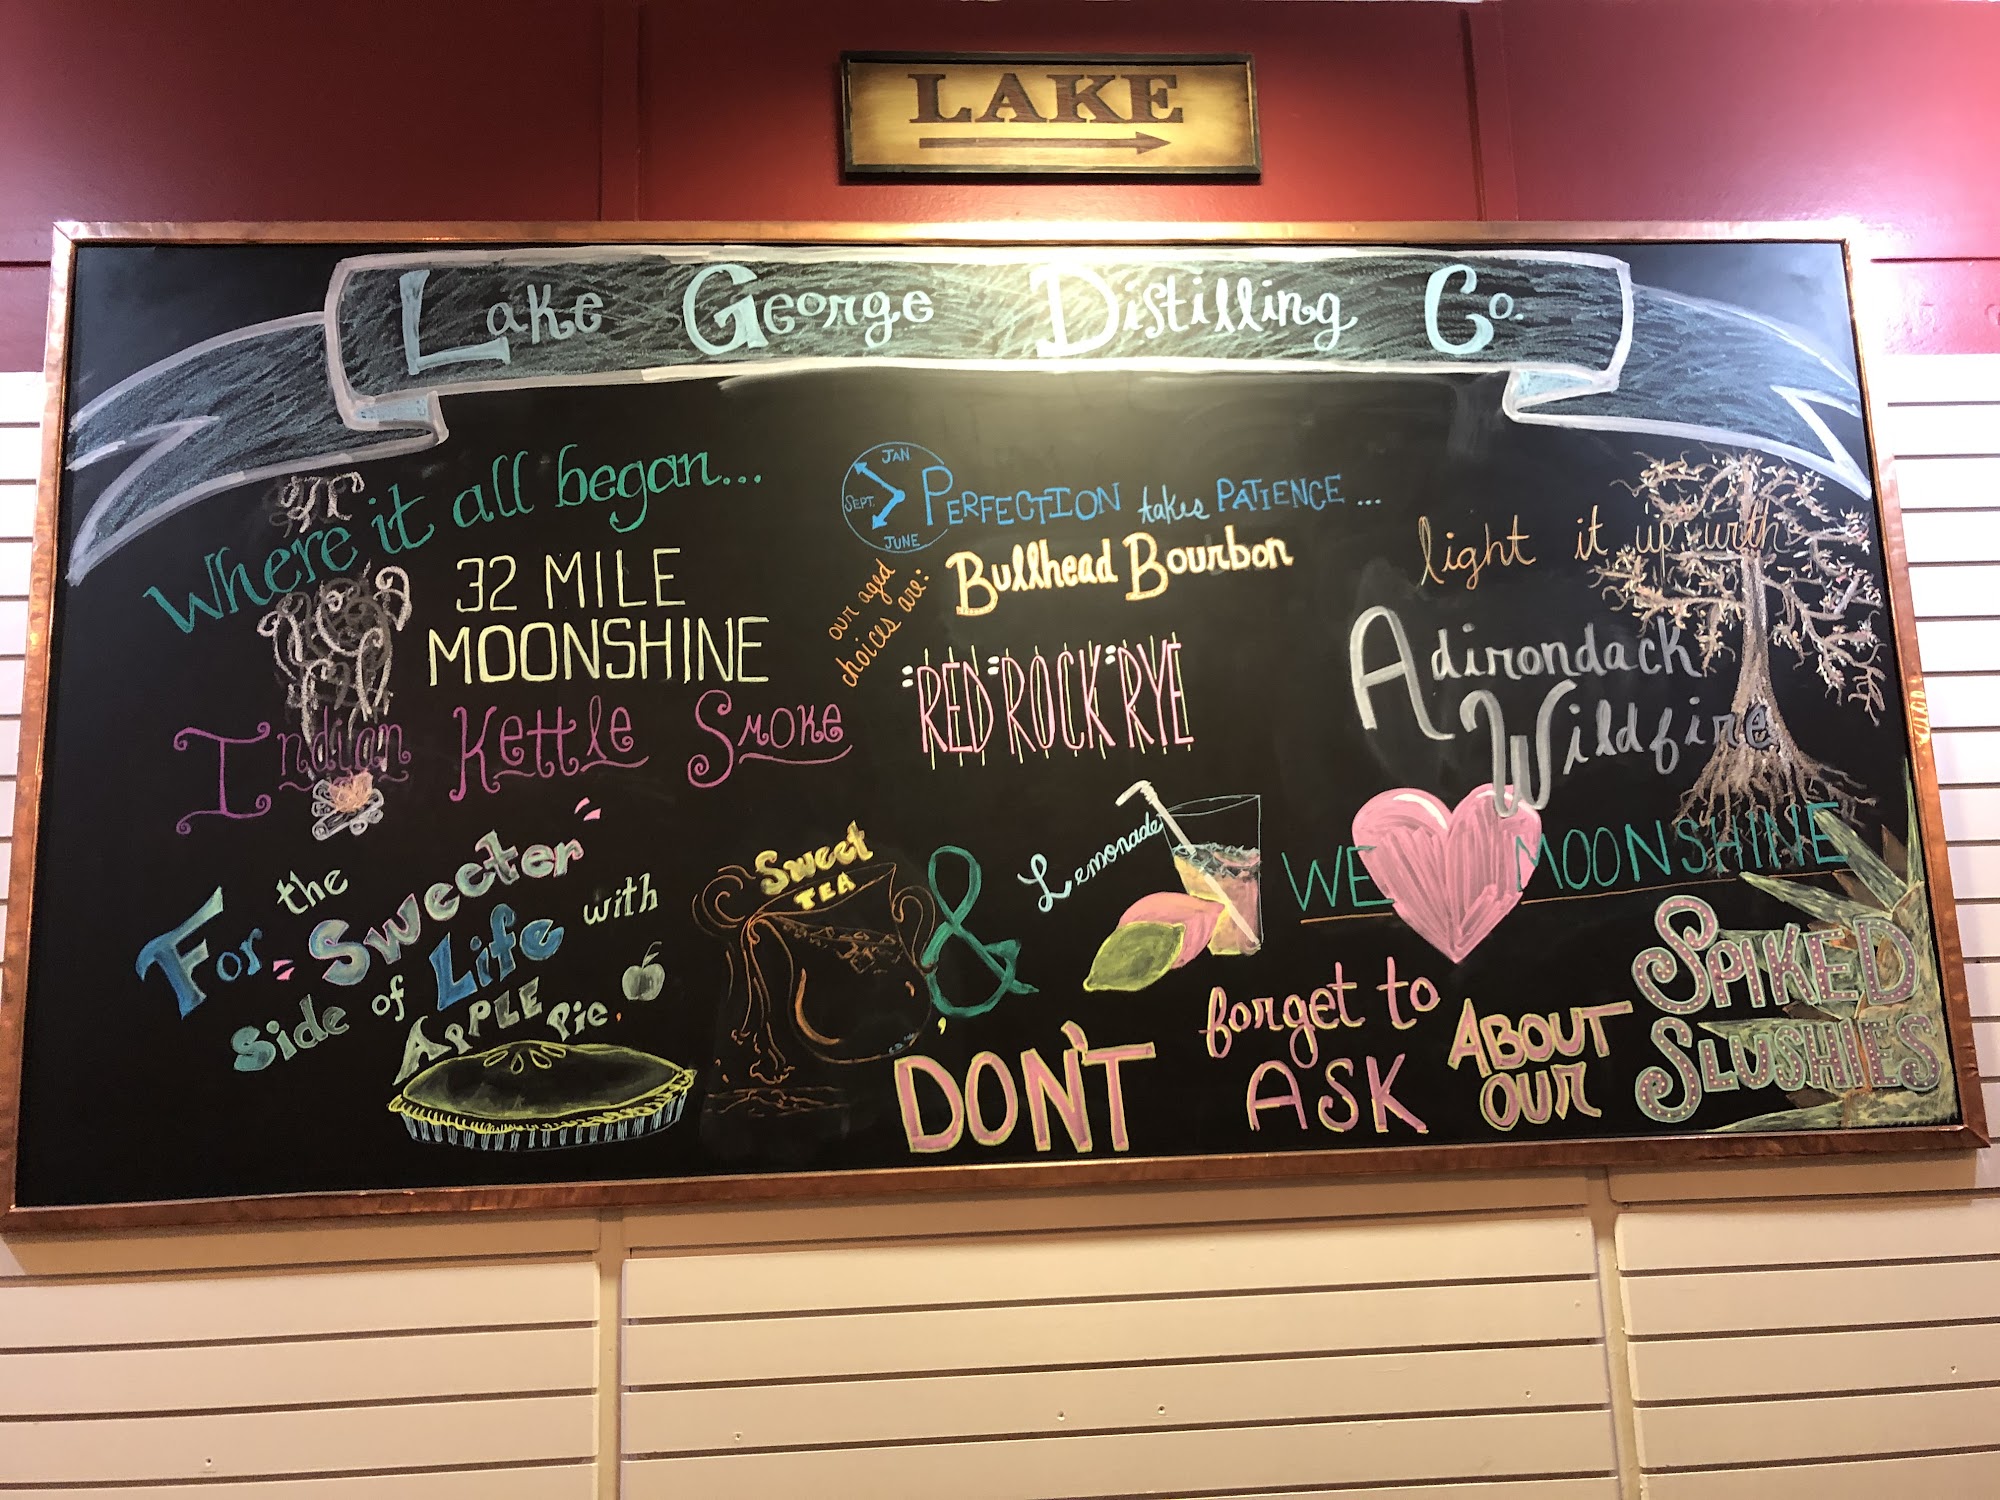 LAKE
Lake George Distilling Co.
Where it all began...
32 MILE
MOONSHINE
Indian Kettle Smoke
JAN
SEPT.
JUNE
PERFECTION takes PATIENCE...
our aged
choices are:
Bullhead Bourbon
"RED "ROCK" RYE
light it up with
Adirondack
Wildfire
For the
"Sweeter"
Side of Life with
APPLE Pie,
Sweet
TEA
&
Lemonade
WE MOONSHINE
DON'T
forget to
ASK
ABOUT
OUR
SPIKED
SLUSHIES